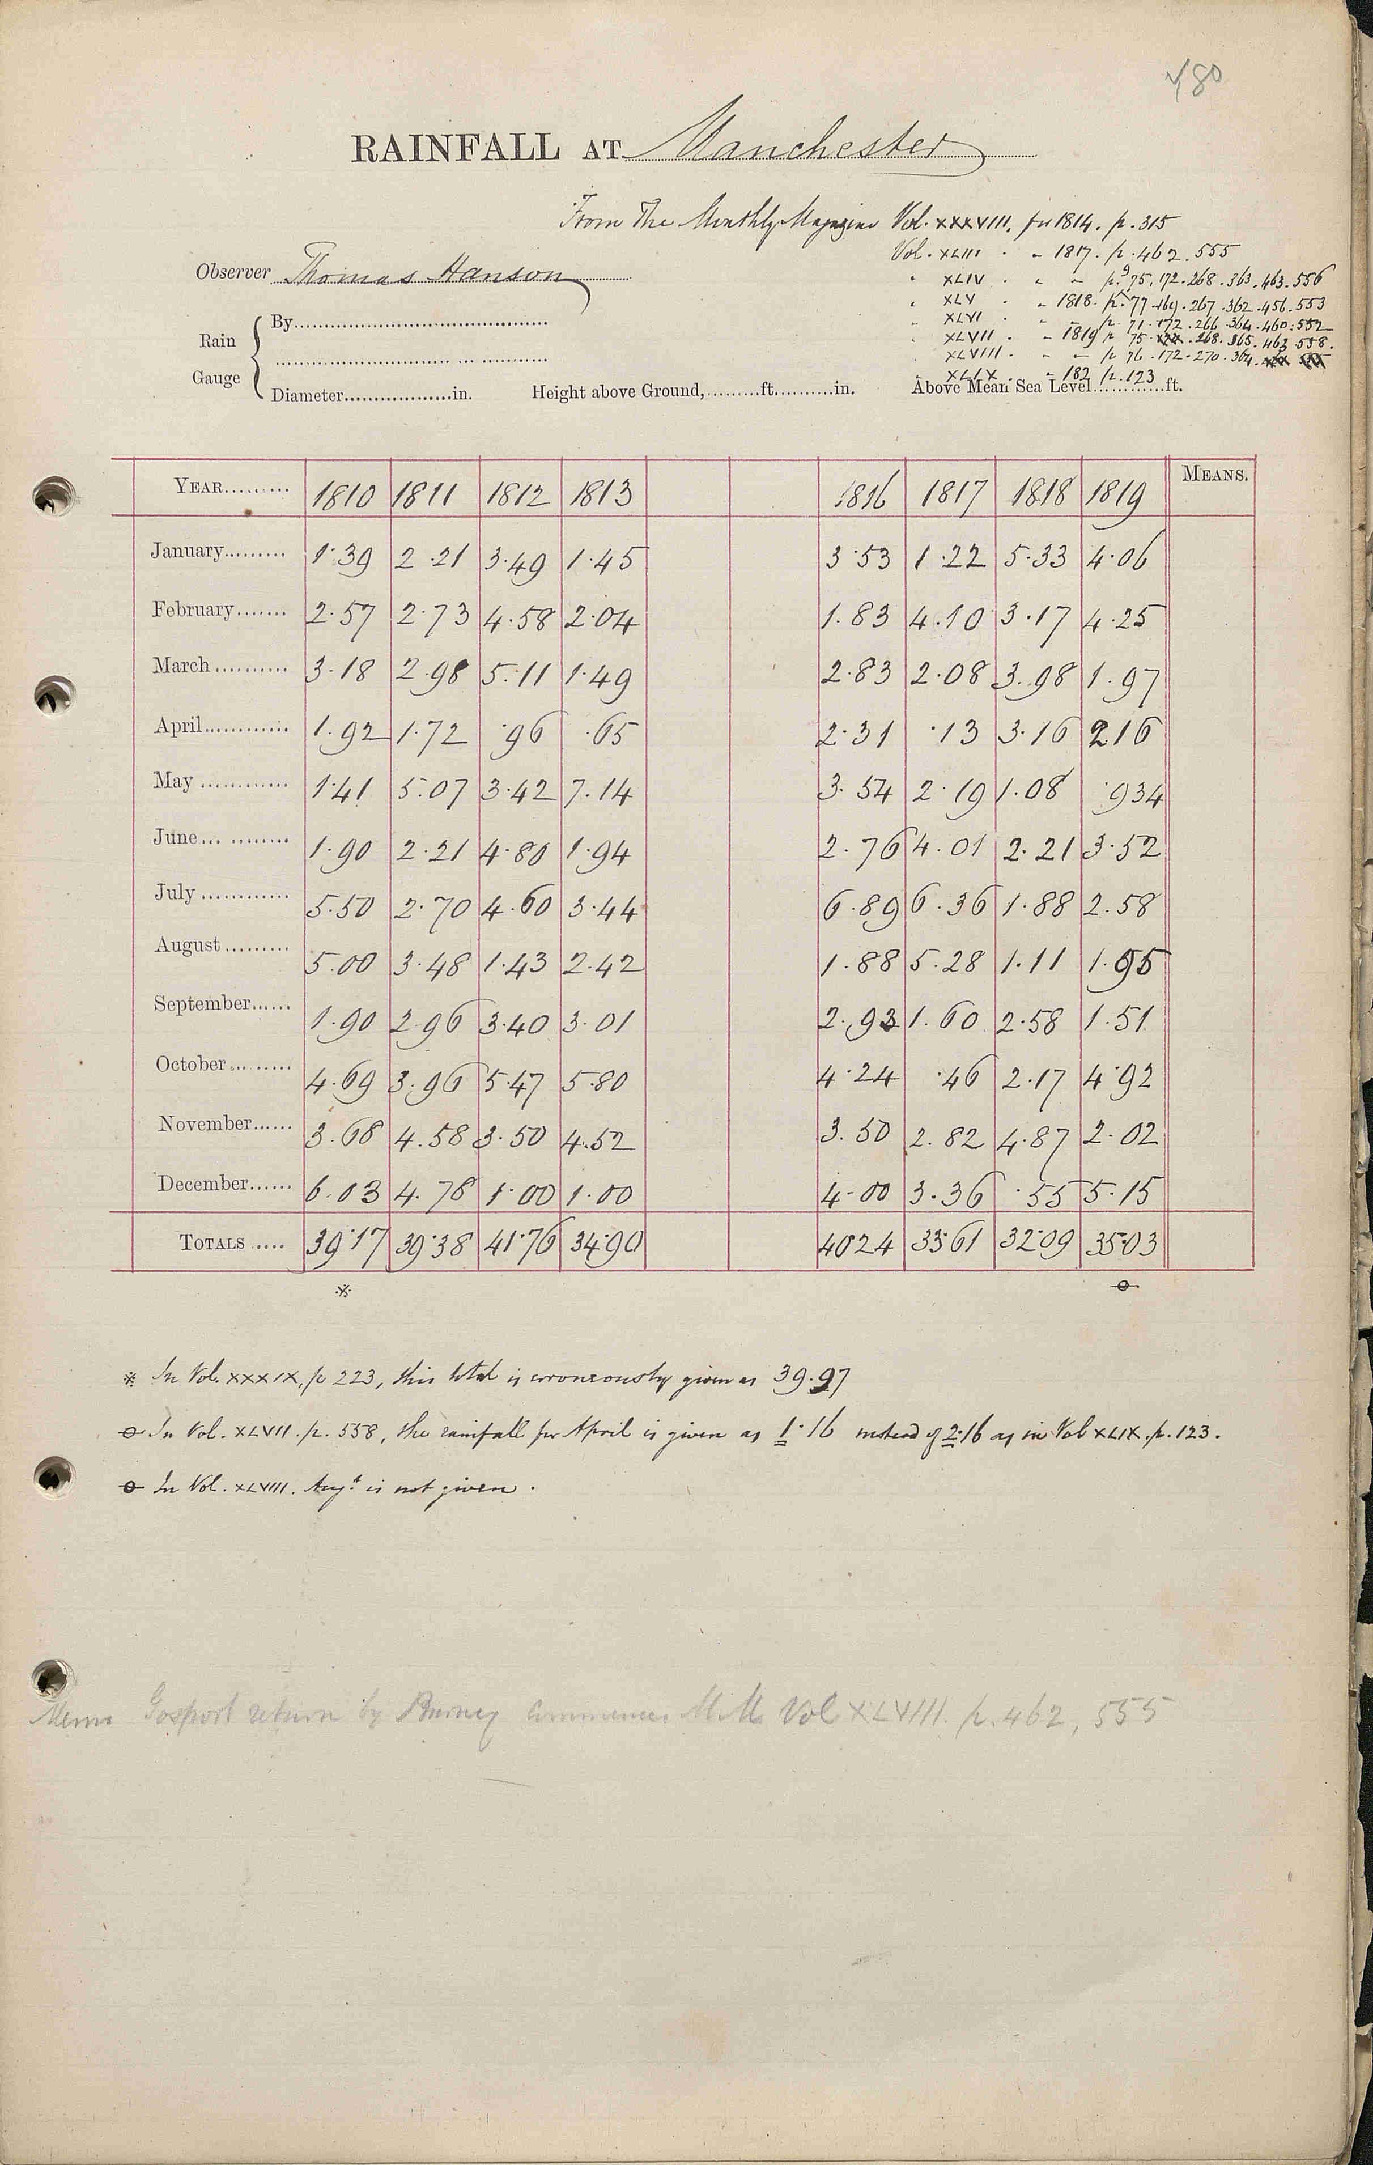 480
RAINFALL AT Manchester
From The Monthly Magazine Vol. XXXVIII, for 1814. p. 315
Vol. XLIII . " 1817. p. 462. 555
Observer Thomas Hanson
" XLIV . " " p. 75. 172. 268. 363. 463. 556
" XLV . " 1818. p. 77. 169. 267. 362. 456. 553
" XLVI . " " p. 71. 172. 266. 364. 460. 552
Rain Gauge
By
" XLVII . " 1819 p. 75. 268. 365. 463. 558.
" XLVIII . " " p 76. 172. 270. 364.
" XLIX . " 182 p. 123
Diameter in. Height above Ground, ft. in. Above Mean Sea Level ft.
YEAR 1810 1811 1812 1813 1816 1817 1818 1819 MEANS.
January 1.39 2.21 3.49 1.45 3.53 1.22 5.33 4.06
February 2.57 2.73 4.58 2.04 1.83 4.10 3.17 4.25
March 3.18 2.98 5.11 1.49 2.83 2.08 3.98 1.97
April 1.92 1.72 .96 .65 2.31 .13 3.16 2 16
May 1.41 5.07 3.42 7.14 3.54 2.19 1.08 .934
June 1.90 2.21 4.80 1.94 2.76 4.01 2.21 3.52
July 5.50 2.70 4.60 3.44 6.89 6.36 1.88 2.58
August 5.00 3.48 1.43 2.42 1.88 5.28 1.11 1.95
September 1.90 2.96 3.40 3.01 2.93 1.60 2.58 1.51
October 4.69 3.96 5.47 5.80 4.24 .46 2.17 4.92
November 3.68 4.58 3.50 4.52 3.50 2.82 4.87 2.02
December 6.03 4.78 1.00 1.00 4.00 3.36 .55 5.15
TOTALS 39.17 39.38 41.76 34.90 40 24 33 61 32.09 35.03
* In Vol. XXXIX, p 223, this total is erroneously given as 39.97
In Vol. XLVII. p. 558, the rainfall for April is given as 1.16 instead of 2.16 as in Vol XLIX. p. 123.
In Vol. XLVIII. Augt is not given.
Memo Gosport return by Burney commences M.M. Vol XLVIII. p. 462, 555